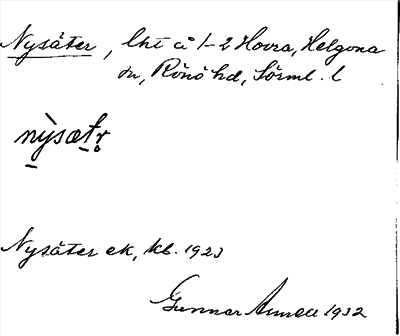 Nysäter, lht å 1-2 Hovra, Helgona
sn, Rönö hd, Sörml. l
nỳsætr
Nysäter ek, kb. 1923
Gunnar Arnell 1932